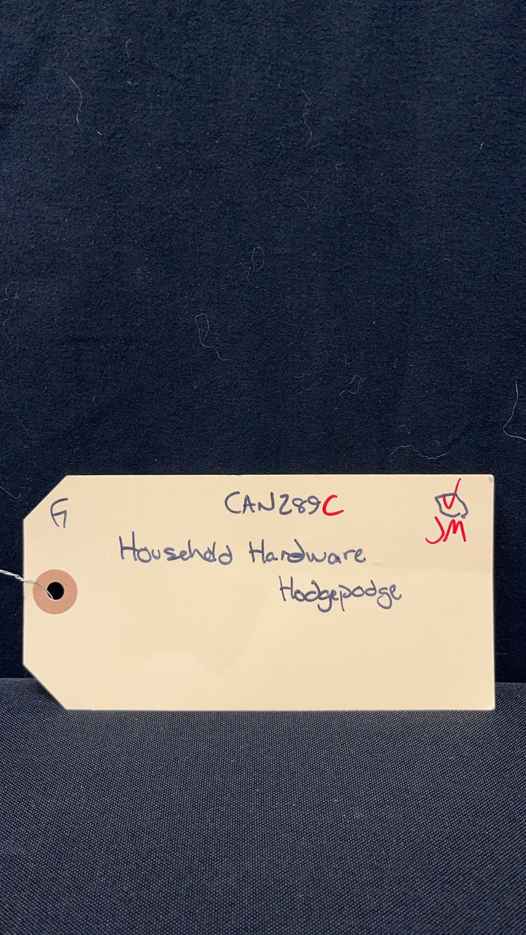 G CAN289C
JM
Household Hardware
Hodgepodge